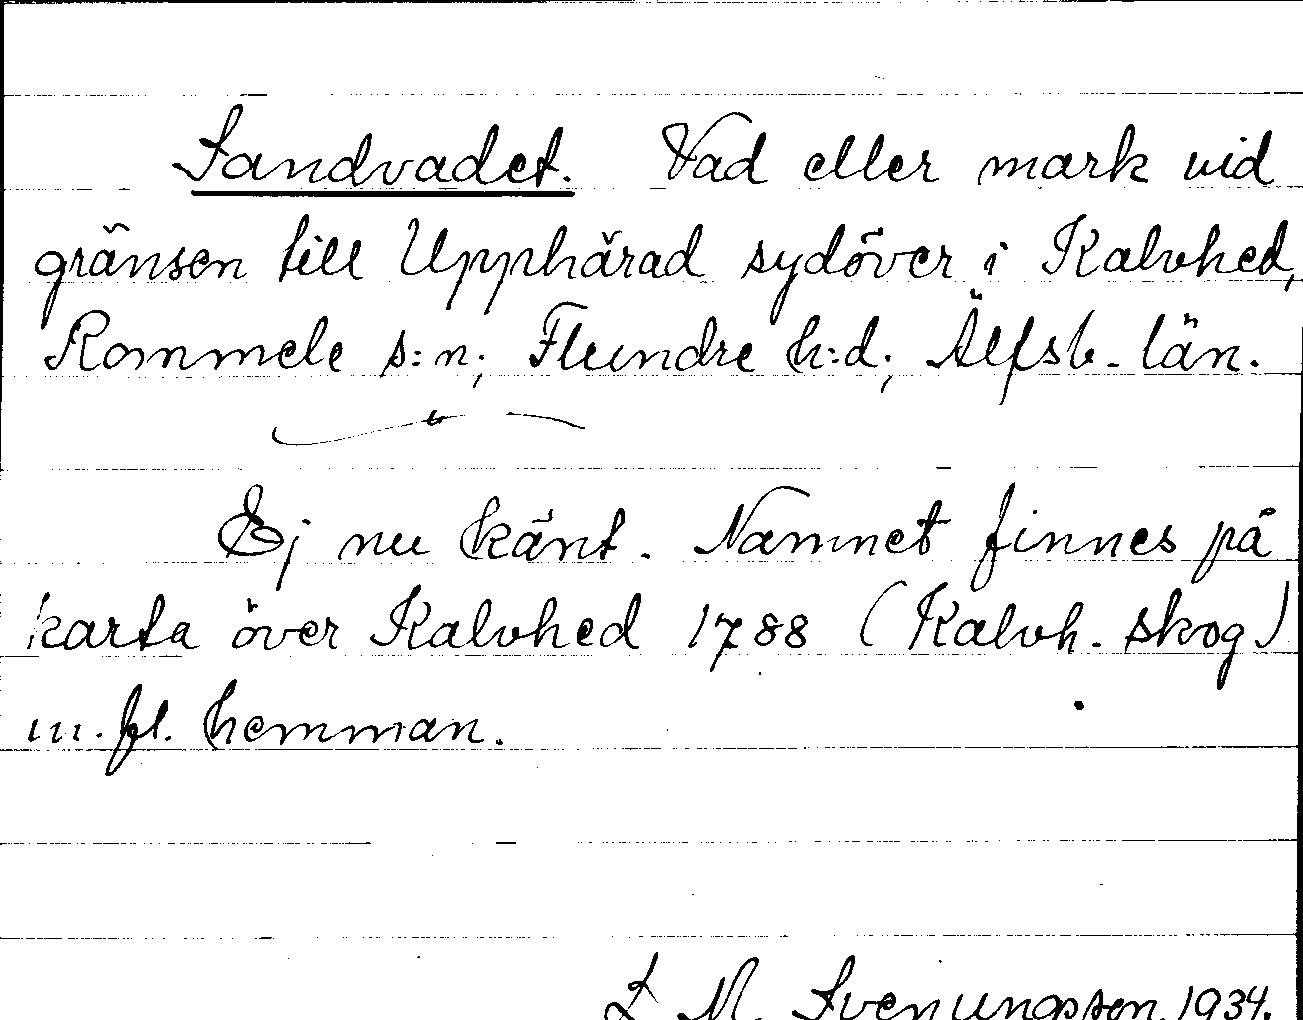 Sandvadet. Vad eller mark vid
gränsen till Upphärad sydöver i Kalvhed,
Rommele s:n; Flundre h:d; Älfsb. län.
Ej nu känt. Namnet finnes på
karta över Kalvhed 1788 (Kalvh. skog)
m. fl. hemman.
L. M. Svenungsson. 1934.